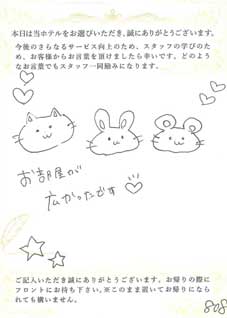 本日は当ホテルをお選びいただき､誠にありがとうございます。
今後のさらなるサービス向上のため、スタッフの学びのため、お客様からお言葉を頂けましたら幸いです。どのようなお言葉でもスタッフ一同励みになります。
お部屋が
広かったです
ご記入いただき誠にありがとうございます。お帰りの際に
フロントにお持ち下さい。※このまま置いてお帰りになられても構いません。
808